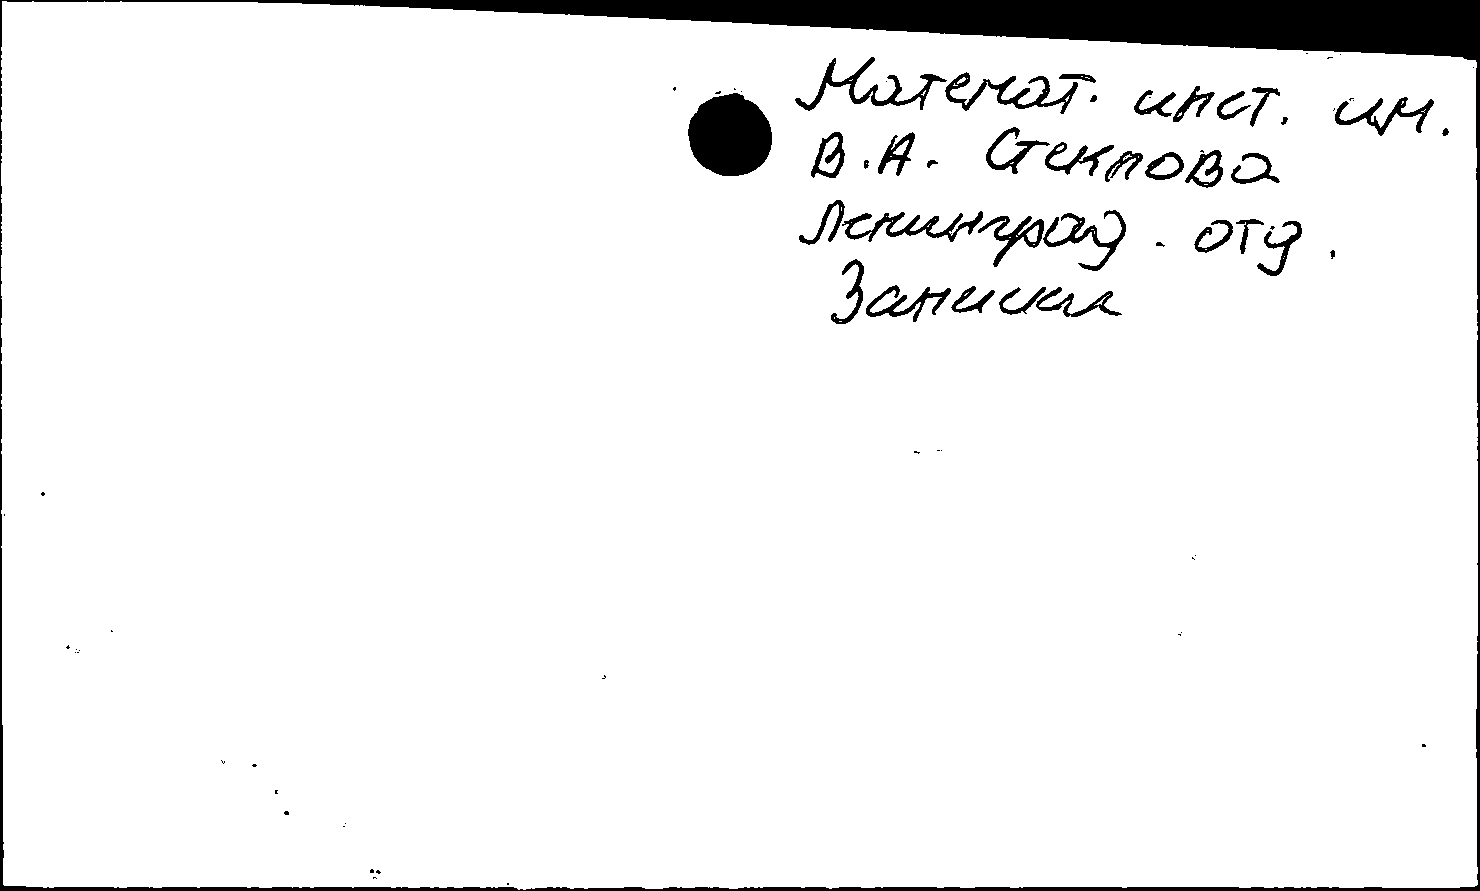 Математ. инст. им.
В.А. Стеклова
Ленинград. отд.
Записки